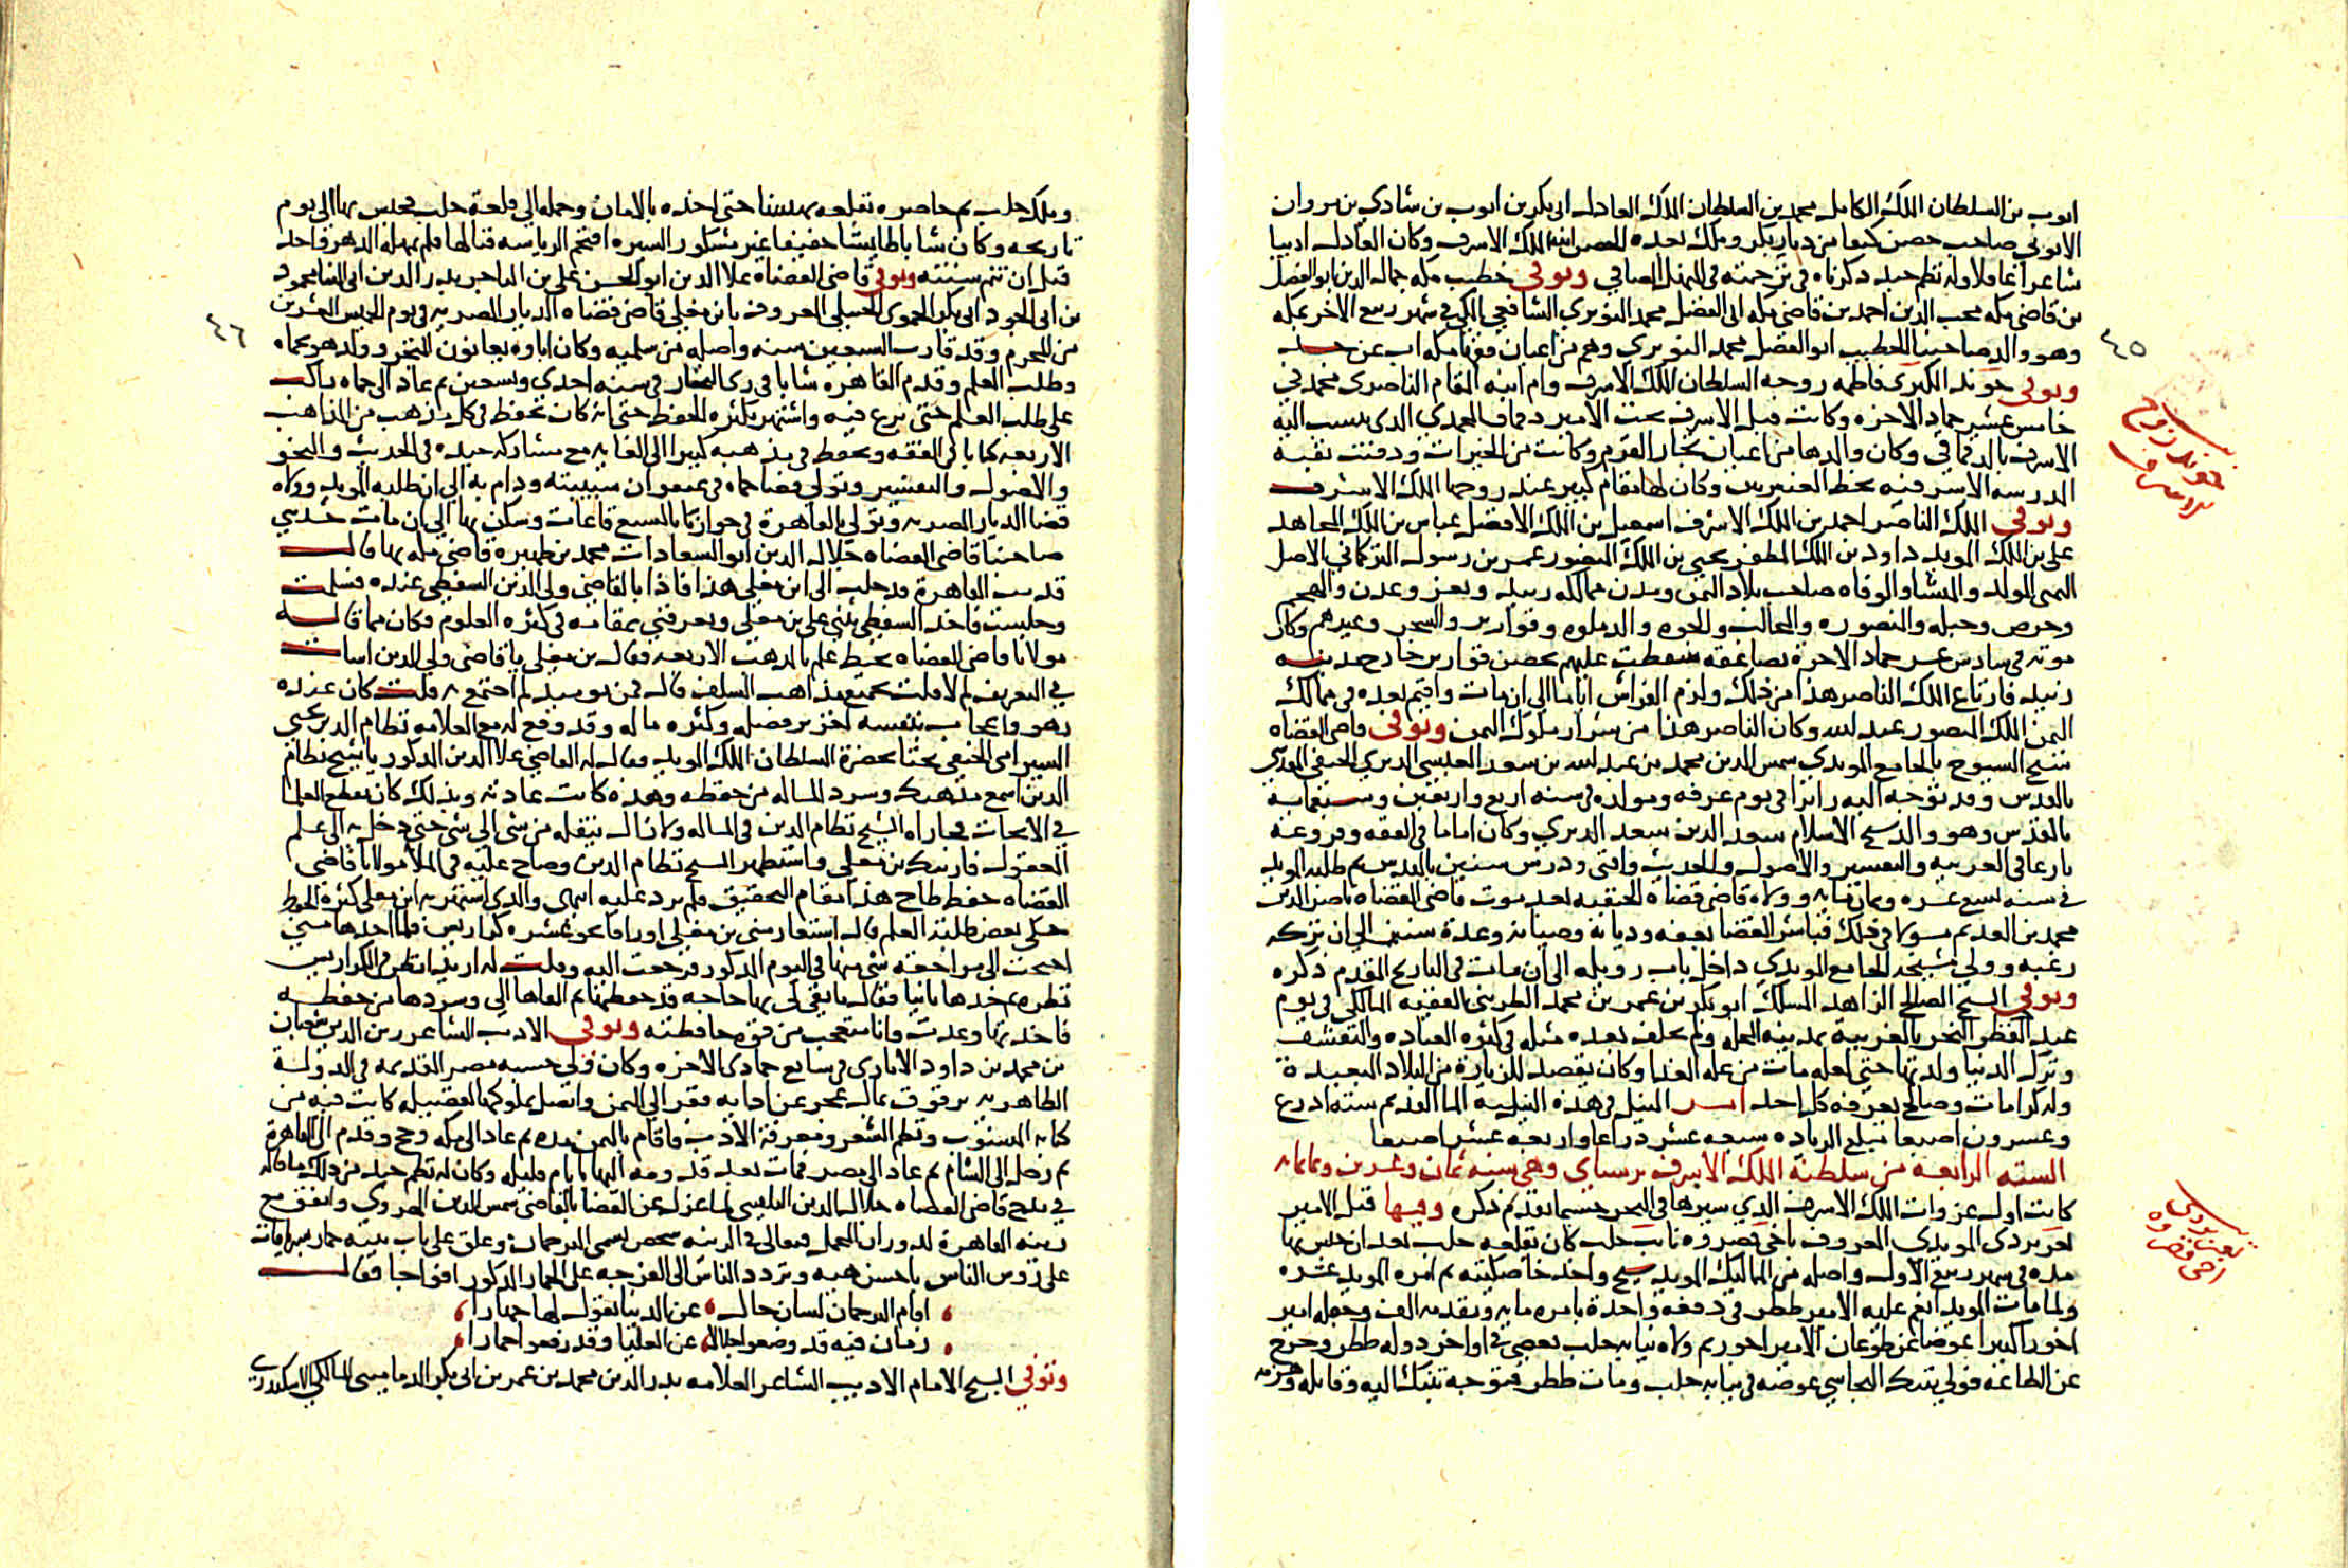 ايوب بن السلطان الملك الكامل محمد بن السلطان الملك العادل ابي بكر بن ايوب بن شادي بن مروان
الايوبي صاحب حصن كيفا من ديار بكر وملك بعده الحصن ابنه الملك الاشرف وكان العادل اديبا
شاعرا عاقلا وله نظم جيد ذكرناه في ترجمته في المنهل الصافي وتوفي خطيب مكه جمال الدين ابو الفضل
بن قاضي مكه محب الدين احمد بن قاضي مكه ابي الفضل محمد النويري الشافعي المكي في شهر ربيع الاخر بمكه
وهو والد صاحبنا الخطيب ابو الفضل محمد النويري وهم من اعيان فقها مكه اب عن جد
٤٥
وتوفي خوند الكبرى فاطمه زوجه السلطان الملك الاشرف وام ابنه المقام الناصري محمد في
خامس عشر جماد الاخره وكانت قبل الاشرف تحت الامير دقماق المحمدي الذي ينسب اليه
الاشرف بالدقماقي وكان والدها من اعيان تجار القرم وكانت من الخيرات ودفنت بقبه
المدرسه الاشرفيه بخط العنبريين وكان لها مقام كبير عند زوجها الملك الاشرف
خوند زوج
برسباي
وتوفي الملك الناصر احمد بن الملك الاشرف اسمعيل بن الملك الافضل عباس بن الملك المجاهد
علي بن الملك المويد داود بن الملك المظفر يحيى بن الملك المنصور عمر بن رسول التركماني الاصل
اليمني المولد والمنشا والوفاه صاحب بلاد اليمن ومدن ممالكه زبيد وتعز وعدن والمهجم
وحرض وجبله والمنصوره والمحالب والجوه والدملوه وقوارير والشحر وغيرهم وكان
موته في سادس عشر جماد الاخرة بصاعقه سقطت عليهم بحصن قوارير خارج مدينه
زبيد فارتاع الملك الناصر هذا من ذلك ولزم الفراش اياما الى ان مات واقيم بعده في ممالك
اليمن الملك المنصور عبد الله وكان الناصر هذا من شرار ملوك اليمن وتوفي قاضي القضاه
شيخ الشيوخ بالجامع المويدي شمس الدين محمد بن عبد الله بن سعد العبسي الديري الحنفي المقدسي
بالقدس وقد توجه اليه زايرا في يوم عرفه ومولده في سنه اربع واربعين وسبعمايه
بالقدس وهو والد شيخ الاسلام سعد الدين سعد الديري وكان اماما في الفقه وفروعه
بارعا في العربيه والتفسير والاصول والحديث وافتى ودرس سنين بالقدس ثم طلبه المويد
في سنه تسع عشره وثمان مايه وولاه قاضي قضاة الحنفيه بعد موت قاضي القضاه ناصر الدين
محمد بن العديم مسولا في ذلك فباشر القضا بعفه وديانه وصيانه وعدة سنين الى ان تركه
رغبه وولي مشيخه الجامع المويدي داخل باب زويله الى ان مات في التاريخ المقدم ذكره
وتوفي الشيخ الصالح الزاهد المسلك ابو بكر بن عمر بن محمد الطريني الفقيه المالكي في يوم
عيد الفطر النحر بالغربيه بمدينه المحله ولم يخلف بعده مثله في كثره العباده والتقشف
وترك الدنيا ولذتها حتى لعله مات من عله الغذا وكان يقصد للزيارة من البلاد البعيدة
وله كرامات وصلاح يعرفه كل احد امر النيل في هذه السنه الما القديم سته اذرع
وعشرون اصبعا مبلغ الزياده سبعه عشر ذراعا واربعه عشر اصبعا
السنه الرابعه من سلطنة الملك الاشرف برسباي وهي سنه ثمان وعشرين وثمانمايه
كانت اول غزوات الملك الاشرف الذي سيرها في البحر حسبما تقدم ذكره وفيها قتل الامير
تغري بردي المويدي المعروف باخي قصروه نايب حلب كان بقلعه حلب بعد ان حبس بها
تغري بردي
اخي قصروه
مده في شهر ربيع الاول واصله من المماليك المويد شيخ واحد خاصكيته ثم امره المويد عشره
ولما مات المويد انعم عليه الامير ططر في دفعه واحدة بامره مايه وتقدمه الف وجعله امير
اخورا كبيرا عوضا عن طوغان الامير اخور ثم ولاه نيابه حلب فعصى في اواخر دوله ططر وخرج
عن الطاعه فولي تنبك البجاسي عوضه في نيابه حلب ومات ططر فتوجه تنبك اليه وقاتله وهزمه
وملك حلب ثم حاصره بقلعه بهسنا حتى اخذه بالامان وحمله الى قلعة حلب فحبس بها الى يوم
تاريخه وكان شابا طايشا خفيفا غير مشكور السيره اقتحم الرياسه فنالها فلم يمهله الدهر واخذ
قبل ان تتم سنته وتوفي قاضي القضاة علا الدين ابو الحسن علي بن التاجر بدر الدين ابي الثنا محمود
بن ابي الجود ابي بكر الحموي الحنبلي المعروف بابن مغلي قاضي قضاه الديار المصريه في يوم الخميس العشرين
٤٦
من المحرم وقد قارب السبعين سنه واصله من سلميه وكان اباوه يعانون المتجر وولد هو بحماه
وطلب العلم وقدم القاهره شابا في زي التجار في سنه احدى وتسعين ثم عاد الى حماه واكب
على طلب العلم حتى برع فيه واشتهر بكثره الحفظ حتى انه كان يحفظ في كل مذهب من المذاهب
الاربعه كتابا في الفقه ويحفظ في مذهبه كثيرا الى الغايه مع مشاركه جيده في الحديث والنحو
والاصول والتفسير وتولى قضا حماه في عنفوان شبيبته ودام به الى ان طلبه المويد وولاه
قضا الديار المصريه ونزل بالقاهرة في جوارنا بالسبع قاعات وسكن بها الى ان مات حدثني
صاحبنا قاضي القضاه جلال الدين ابو السعادات محمد بن ظهيره قاضي مكه بها قال
قدمت القاهرة فدخلت الى ابن مغلي هذا فاذا بالقاضي ولي الدين السفطي عنده فسلمت
وجلست فاخذ السفطي يثني على بن مغلي ويعرفني بمقامه في كثره العلوم فكان مما قاله
مولانا قاضي القضاه يحيط علما بالمذاهب الاربعه فقال بن مغلي يا قاضي ولي الدين اسات
في التعريف لم لا قلت بجميع مذاهب السلف قال فمن يوميذ لم اجتمع به قلت كان عنده
زهو واعجاب بنفسه لغزير فضله وكثره ماله وقد وقع له مع العلامه نظام الدين يحيى
السيرامي الحنفي بحثا بحضرة السلطان الملك المويد فقال له القاضي علا الدين المذكور يا شيخ نظام
الدين اسمع مذهبك وسرد المساله من حفظه وهذه كانت عادته وبذلك كان يقطع العلما
في الابحاث فجاراه الشيخ نظام الدين في المساله ولا زال ينقله من شي الى شي حتى دخل به الى علم
المعقول فارتبك بن مغلي واستظهر الشيخ نظام الدين وصاح عليه في الملا مولانا قاضي
القضاه حفظ طاح هذا مقام التحقيق فلم يرد عليه انتهى والذي اشتهر به ابن مغلي كثره الحفظ
حكى بعض طلبة العلم قال استعار مني بن مغلي اوراقا نحو عشره كراريس فلما اخذها مني
احتجت الى مراجعه شي منها في اليوم المذكور فرجعت اليه وقلت له اريد انظر في الكراريس
نظره ثم خذها ثانيا فقال ما بقي لي بها حاجه قد حفظتها ثم القاها الي وسردها من حفظه
فاخذتها وعدت وانا متعجب من قوه حافظته وتوفي الاديب الشاعر زين الدين شعبان
بن محمد بن داود الاثاري في سابع جمادى الاخره وكان ولي حسبه مصر القديمه في الدولة
الظاهريه برقوق بمال عجز عن ادايه ففر الى اليمن واتصل بملوكها لفضيله كانت فيه من
كتابه المنسوب ونظم الشعر ومعرفة الادب فاقام باليمن مده ثم عاد الى مكه وحج وقدم الى القاهرة
ثم رحل الى الشام ثم عاد الى مصر فمات بعد قدومه اليها بايام قليله وكان له نظم جيد من ذلك ما قاله
في مدح قاضي القضاه جلال الدين البلقيني لما عزل عن القضا بالقاضي شمس الدين الهروي واتفق مع
زينه القاهرة لدوران المحمل فتغالى في الزينه شخص يسمى الترجمان وعلق على باب بيته حمار سرياقات
على روس الناس باحسن هيه وتردد الناس الى الفرجه على الحمار المذكور افواجا فقال
اقام الترجمان لسان حال عن الدنيا يقول لها جهارا
زمان فيه قد وضعوا جلالا عن العليا وقد رفعوا حمارا
وتوفي الشيخ الامام الاديب الشاعر العلامه بدر الدين محمد بن عمر بن ابي بكر الدماميني المالكي الاسكندري